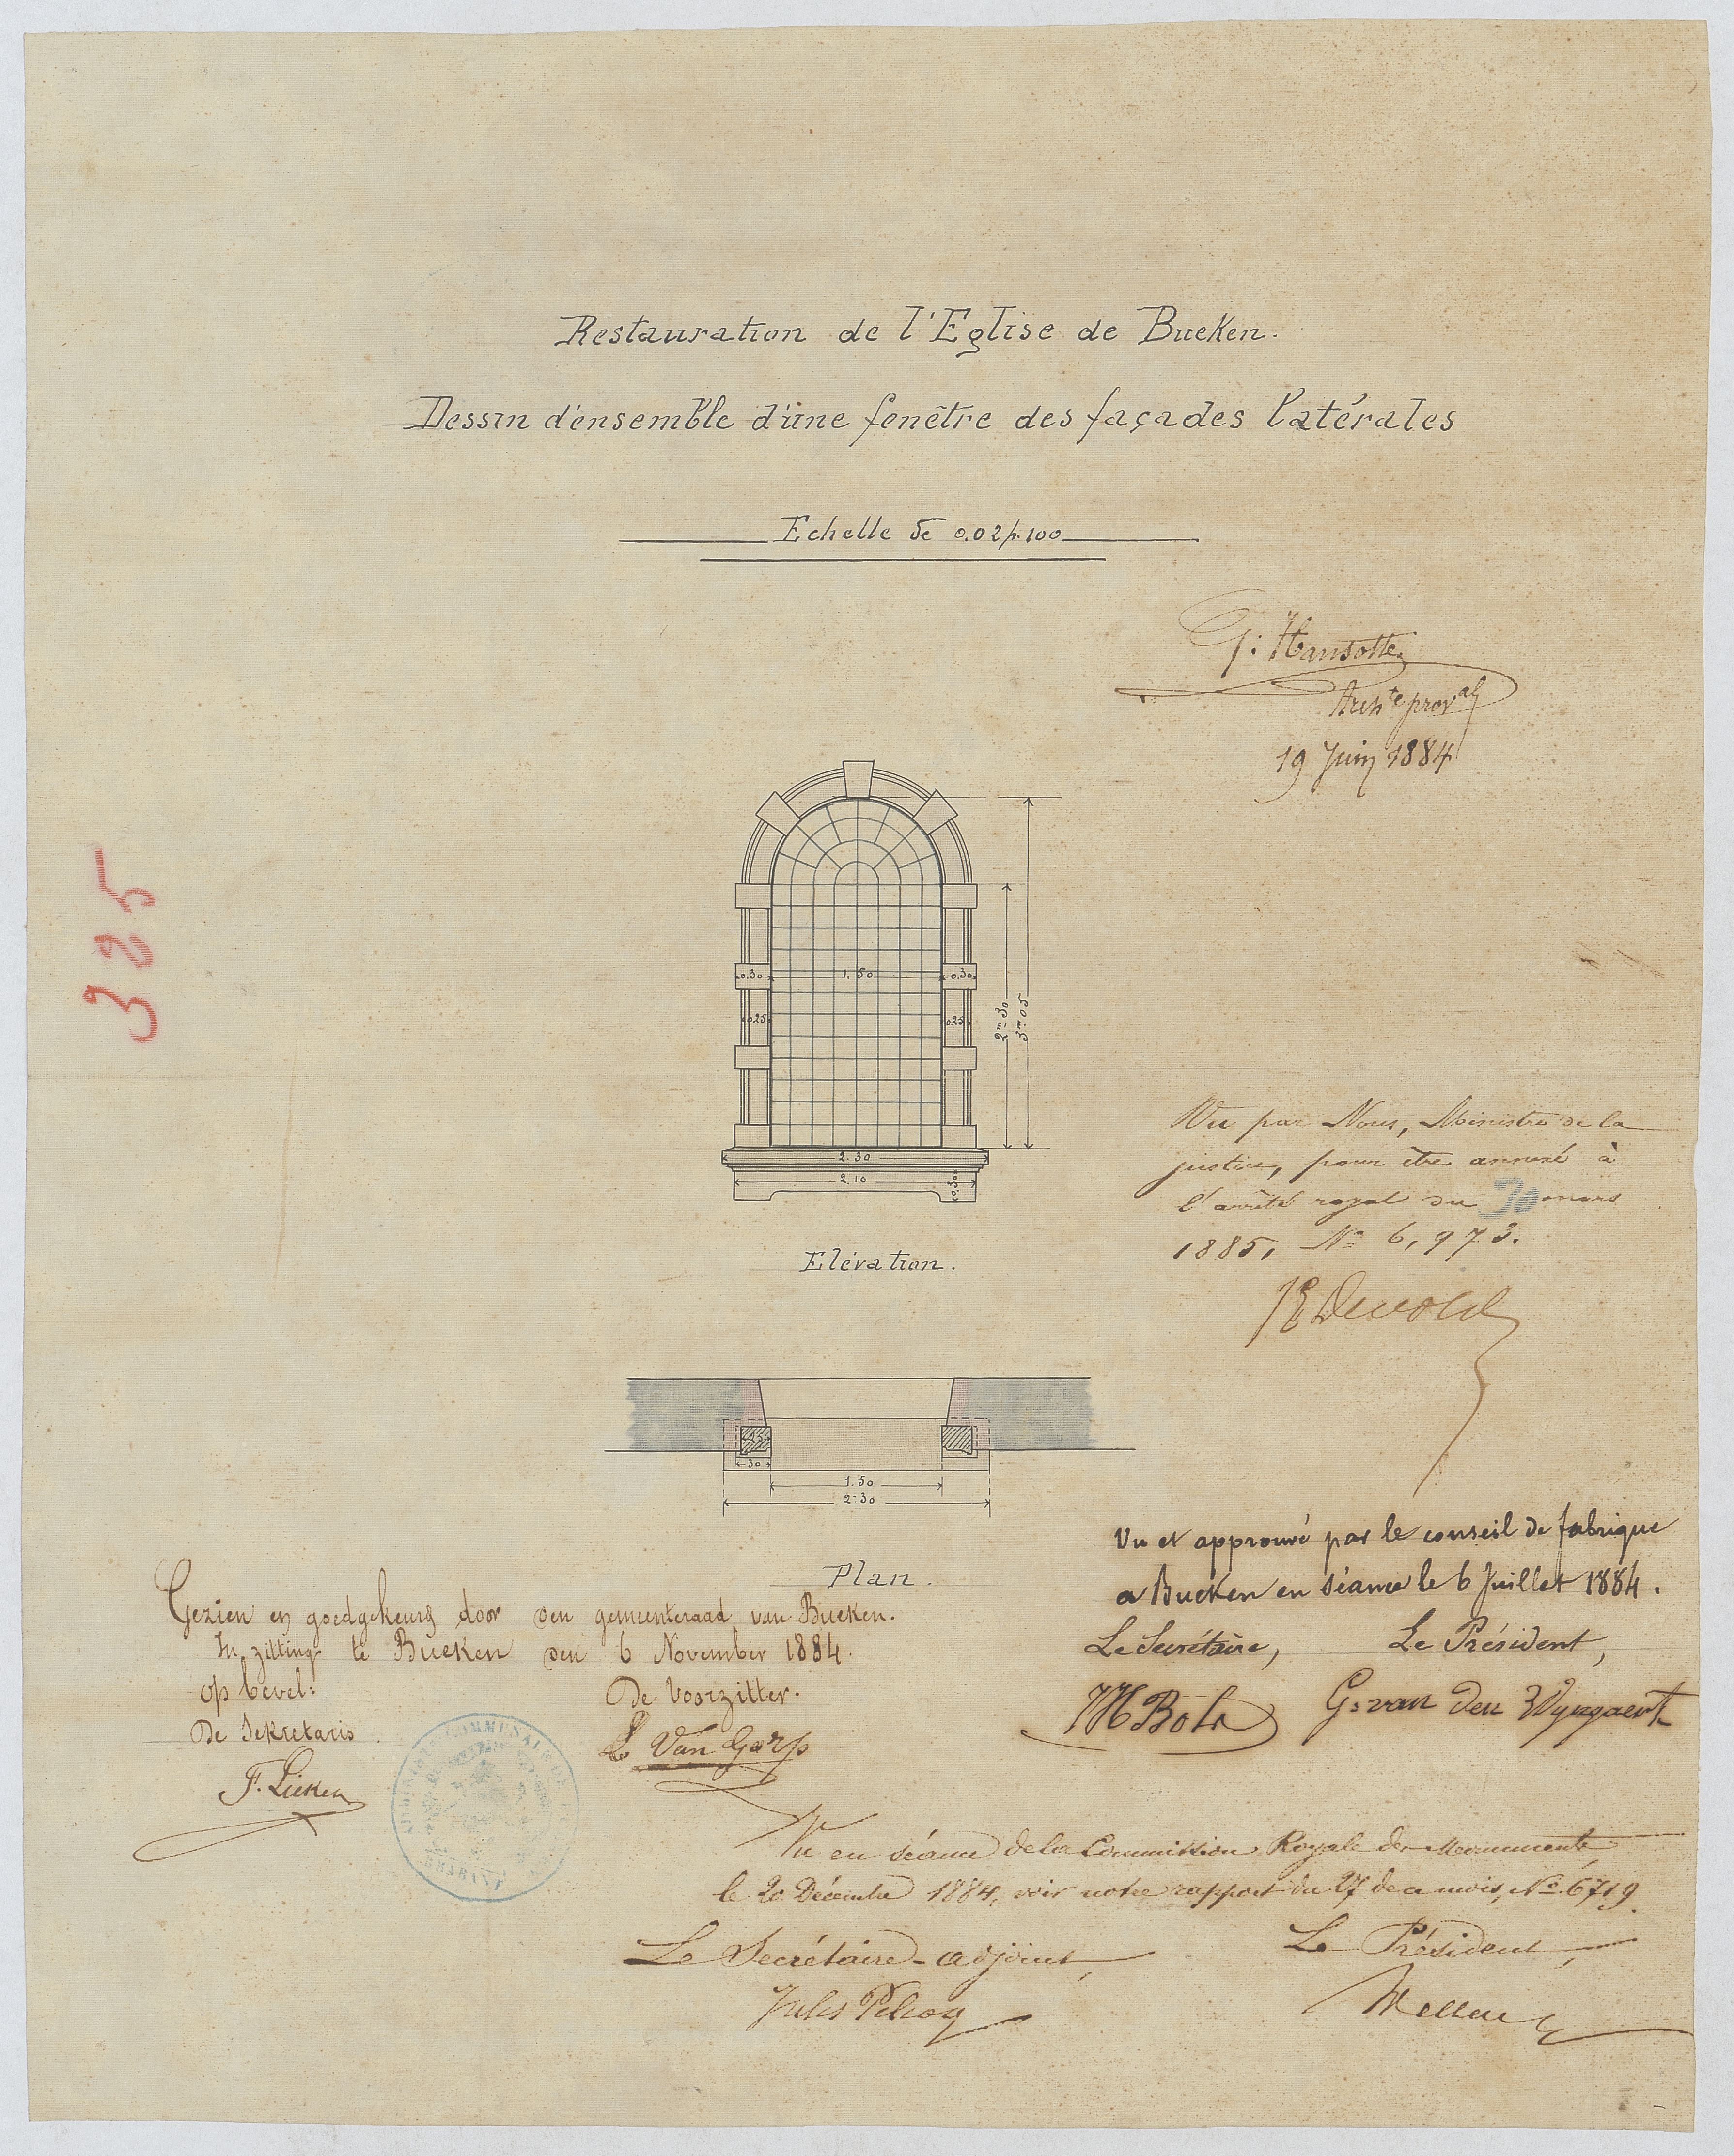 Restauration de l'Eglise de Bueken.
Dessin d'ensemble d'une fenêtre des façades latérales
Echelle de 0.02 p. 100
G: Hansotte
Archte proval
19 Juin 1884
325
0.30
1.50
0.30
0.25
0.25
2m30
3m05
2.30
2.10
0.30
Elévation.
Vu par Nous, Ministre de la
justice, pour être annexé à
l'arrêté royal du 30 mars
1885, No 6,973.
30
1.50
2.30
Plan.
Vu et approuvé par le conseil de fabrique
a Bueken en séance le 6 Juillet 1884.
Le Secrétaire, Le Président,
G. van den Wyngaert
Gezien en goedgekeurd door den gemeenteraad van Bueken.
In zitting te Bueken den 6 November 1884.
op bevel: De Voorzitter.
De Sekretaris
Van Gorp
F. Lieken
COMMUNALE
BRABANT
Vu en séance de la Commission Royale des Monuments
le 20 Décembre 1884, voir notre rapport du 27 de ce mois, No 6719.
Le Secrétaire-adjoint, Le Président,
Jules Pelcoq Wellens